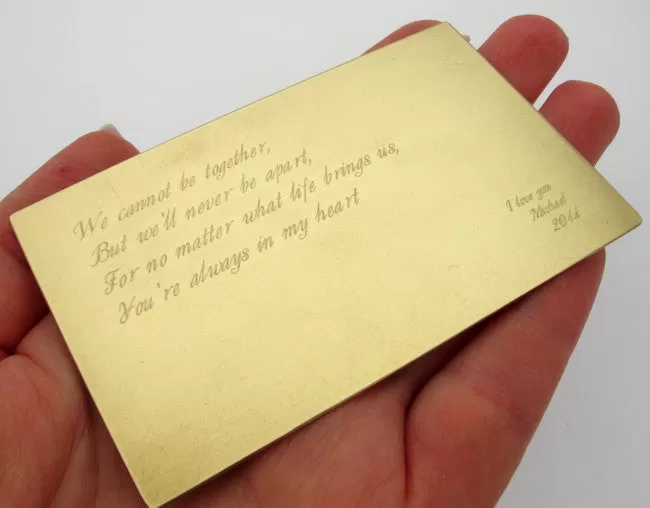 We cannot be together,
But we'll never be apart,
For no matter what life brings us,
You're always in my heart
I love you
Michael
2014